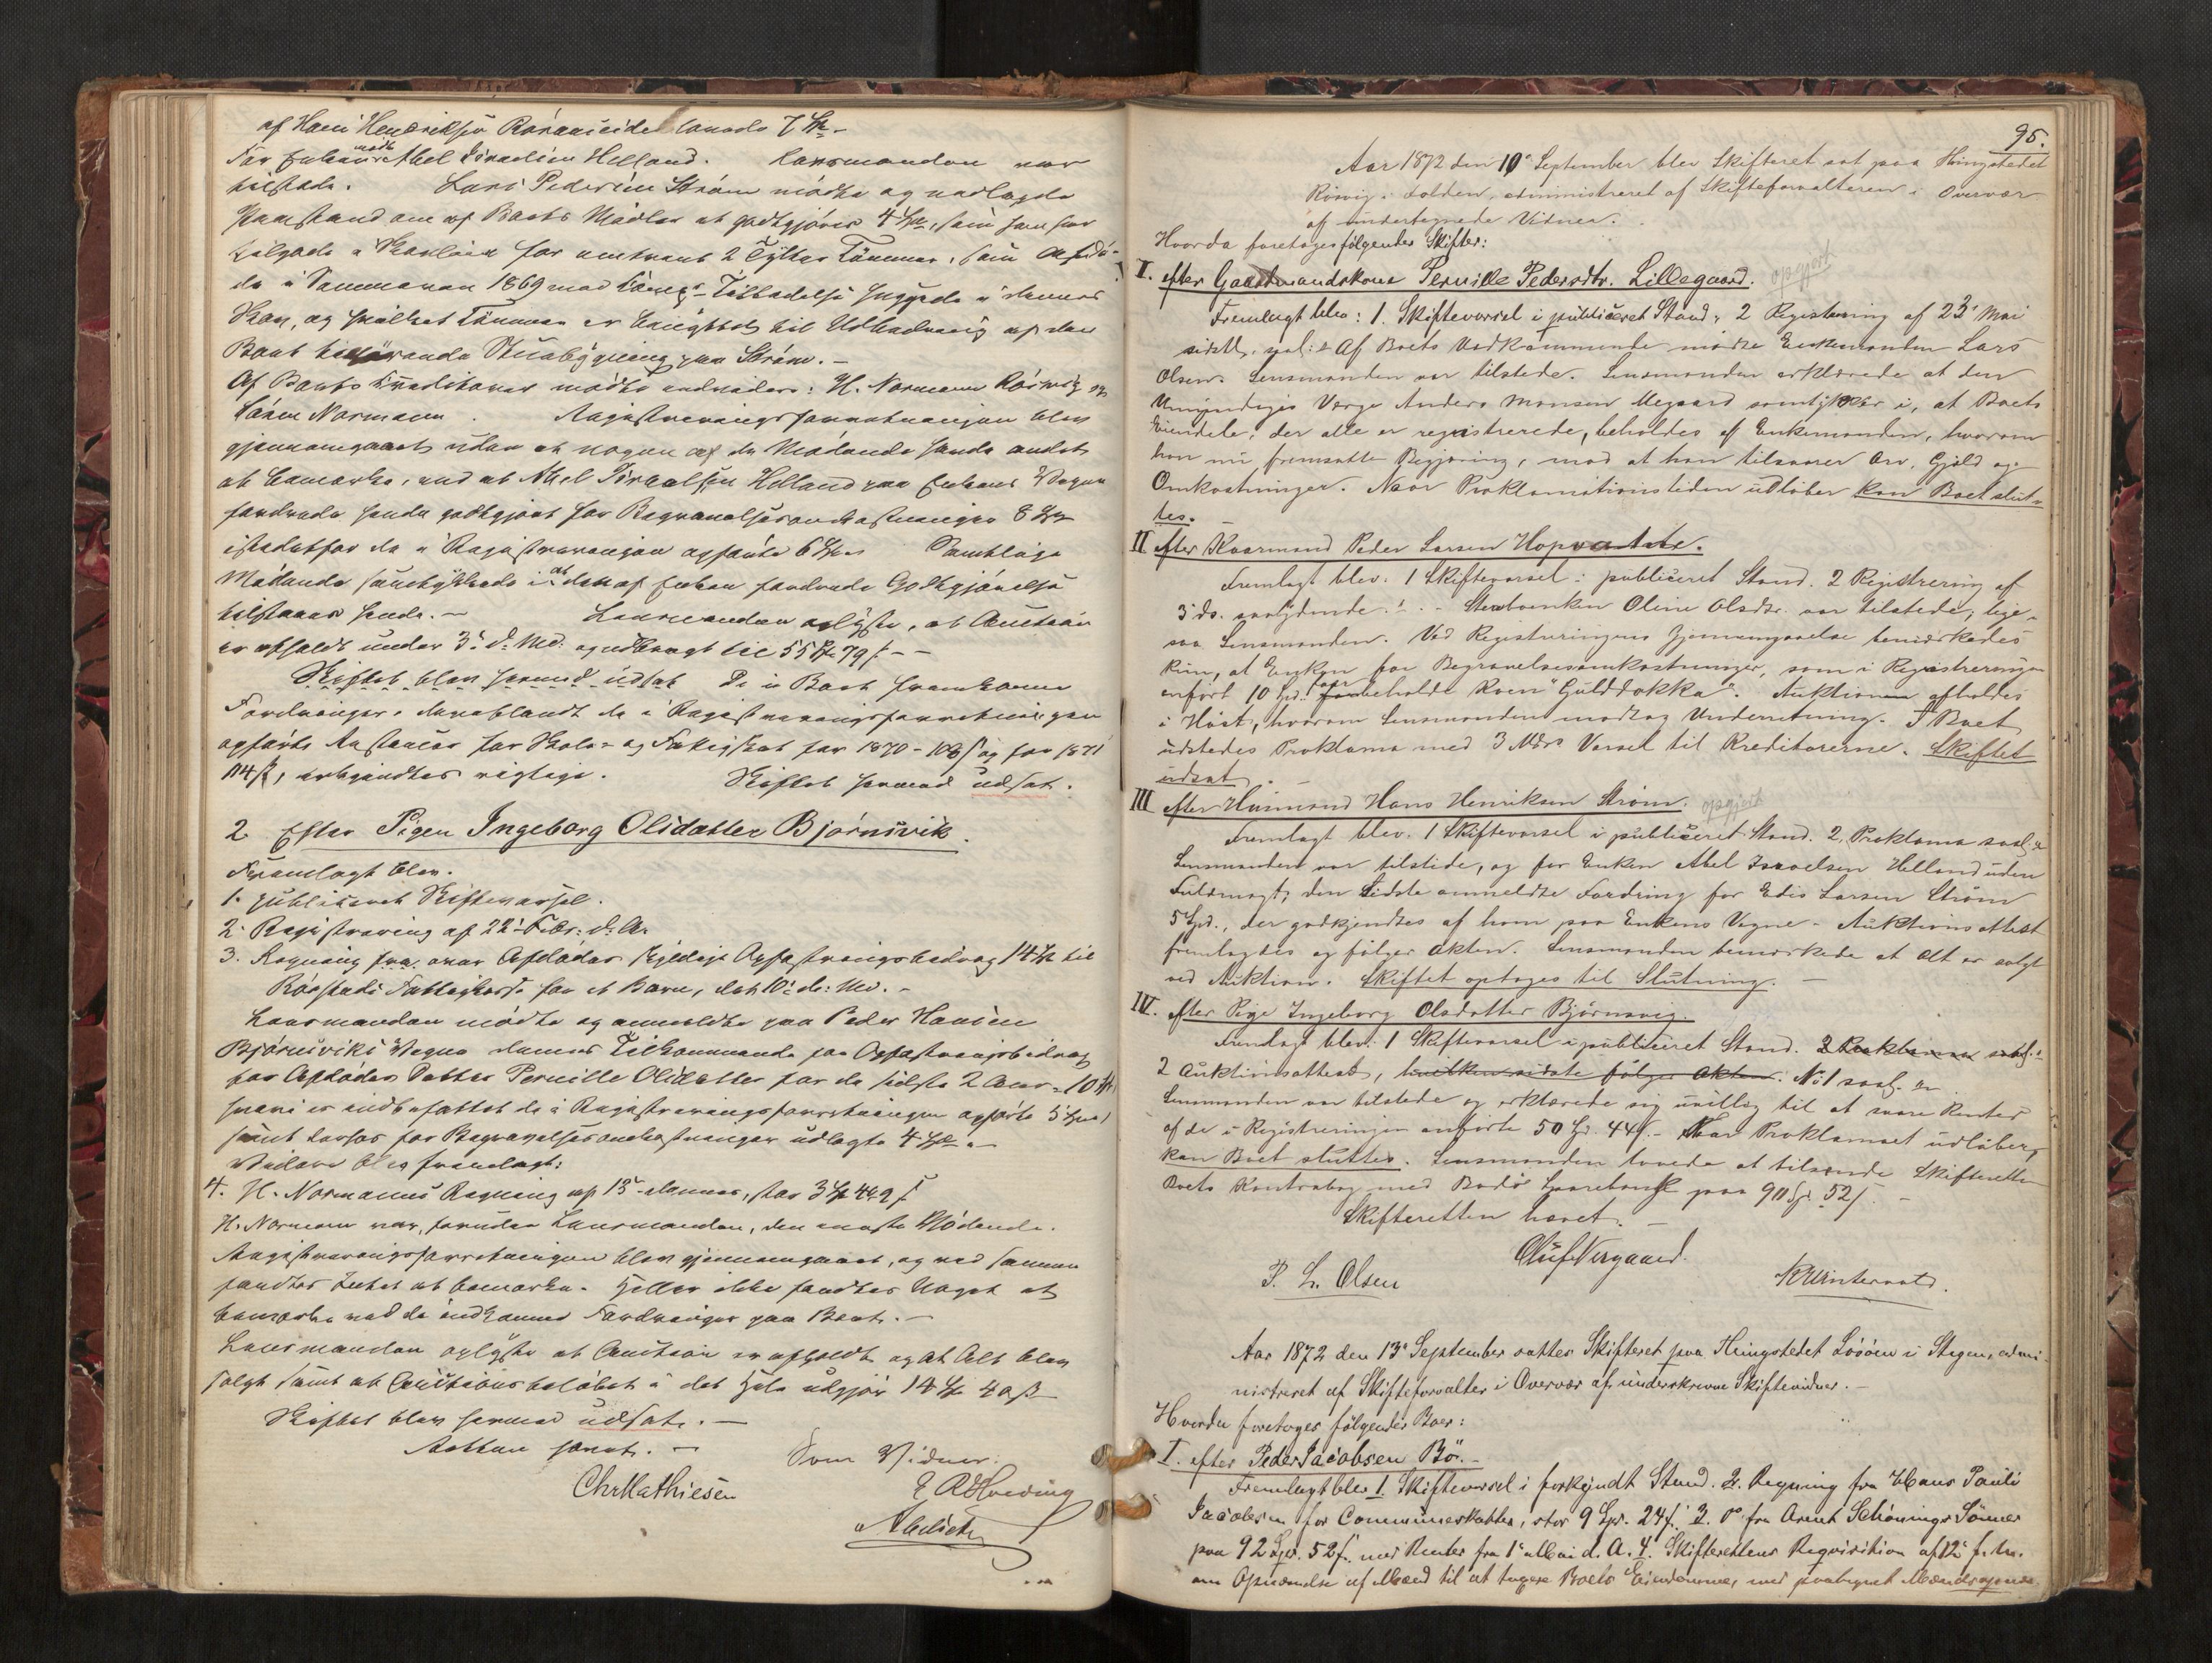 af Hans Hendriksen Rörmeide laande 7 Spd.
For Enken mødte Abel Israelsen Helland. Lensmanden var
tilstede. Lars Pedersen Strøm mødte og nedlagde
Paastand om af Boets Midler at godtgjøres 4 Spd., som han har
tilgode i for omtrent 2 Tylter Tømmer, som Afdø-
de i Sommeren 1869 med Tilladelse huggede i dennes
Skov, og hvilket Tømmer er benyttet til Opbygning af den
Boet tilhørende Stuebygning paa Strøm. -
Af Boets Kreditorer mødte endvidere: H. Normann Rösvig og
Sören Normann. Registreringsforretningen blev
gjennemgaaet uden at nogen af de Mødende havde andet
at bemærke, end at Abel Israelsen Helland paa Enkens Vegne
fordrede hende godtgjort for Begravelsesomkostninger 8 Spd
istedetfor de i Registreringen opførte 6 Spd. Samtlige
Mødende samtykkede i at den af Enken fordrede Godtgjørelse
tilstaaes hende. - Lensmanden oplyste, at Auction
er afholdt under 3' d. Md. og udbragt til 55 Spd 79 s. - -
Skiftet blev hermed udsat. De i Boet fremkomne
Fordringer, deriblandt de i Registreringsforretningen
opførte Restancer for Skole- og Fattigskat for 1870 - 108 s og for 1871
114 s, erkjendtes rigtige. Skiftet hermed udsat.
2. Efter Pigen Ingeborg Olsdatter Björnsvik.
Fremlagt blev.
1. publiceret Skiftevarsel.
2. Registrering af 22' Febr. d. A.
3. Regning fra over Afdødes skyldige Opfostringsbidrag 14 Spd til
Rörstads Fattigkasse for et Barn, dat. 10' d. Md. -
Lensmanden mødte og anmeldte paa Peder Hansen
Björnsviks Vegne dennes Tilkommende for Opfostringsbidrag
for Afdødes Datter Pernille Olsdatter for de sidste 2 Aar - 10 Spd,
hvori er indbefattet de i Registreringsforretningen opførte 5 Spd,
samt for Begravelsesomkostninger udlagte 4 Spd. -
Videre blev fremlagt:
4. H. Normanns Regning af 13' dennes, stor 3 Spd 44 2 s
H. Normann var, foruden Lensmanden, den eneste Mødende.
Registreringsforretningen blev gjennemgaaet, og ved samme
fandtes Intet at bemærke. Heller ikke fandtes Noget at
bemærke ved de indkomne Fordringer paa Boet. -
Lensmanden oplyste at Auction er afholdt og at Alt blev
solgt samt at Auctionsbeløbet i det Hele udgjør 14 Spd 40 s
Skiftet blev hermed udsat. -
Retten hævet. - Som Vidner:
Chr Mathiesen E R Hveding
95.
Aar 1872 den 10' September blev Skifteret sat paa Thingstedet
Rösvig i Folden, administreret af Skifteforvalteren i Overvær
af undertegnede Vidner.
Hvorda foretoges følgende Skifter:
I. efter Gaardmandskone Pernille Pedersdtr. Lillegaard. opgjort
Fremlagt blev: 1. Skiftevarsel i publiceret Stand. 2 Registrering af 23' Mai
sidstl. saal: Af Boets Vedkommende mødte Enkemanden Lars
Olsen. Lensmanden var tilstede. Lensmanden erklærede at den
Umyndiges Værge Anders Monsen Megaard samtykker i, at Boets
Eiendele, der alle er registrerede, beholdes af Enkemanden, hvorom
han nu fremsatte Begjæring, mod at han tilsvarer Arv, Gjæld og
Omkostninger. Naar Proklamationstiden udløber kan Boet slut-
tes.
II efter Kaarmand Peder Larsen Hopvatte.
Fremlagt blev: 1 Skiftevarsel i publiceret Stand. 2 Registrering af
3' ds. saalydende: - Stervenken Oline Olsdtr. var tilstede, lige-
saa Lensmanden. Ved Registreringens Gjennemgaaelse bemærkedes
kun, at Enken for Begravelsesomkostninger, som i Registreringen
anført 10 Spd. faar beholde Koen "Gulddokka". Auktionen afholdes
i Høst, hvorom Lensmanden modtog Underretning. I Boet
udstedes Proklama med 3 Mdrs Varsel til Kreditorerne. Skiftet
udsat.
III efter Husmand Hans Henriksen Strøm. opgjort
Fremlagt blev. 1 Skiftevarsel i publiceret Stand. 2, Proklama saal.
Lensmanden var tilstede, og for Enken Abel Israelsen Helland uden
Fuldmagt; den sidste anmeldte Fordring for Edis Larsen Strøm
5 Spd., der godkjendtes af ham paa Enkens Vegne. Auktionsattest
fremlagdes og følger Akten. Lensmanden bemærkede at Alt er solgt
ved Auktion. Skiftet optoges til Slutning. -
IV. efter Pige Ingeborg Olsdatter Björnsvig.
Fremlagt blev: 1 Skiftevarsel i publiceret Stand. 2 Proklama saal.
2 Auktionsattest, hvilken sidste følger Akten. No 1 saal.
Lensmanden var tilstede og erklærede sig uvillig til at svare Renter
af de i Registreringen anførte 50 Spd. 44 s. - Naar Proklamaet udløber,
kan Boet sluttes. Lensmanden lovede at tilsende Skifteretten
Boets Kontrabog med Bodø Sparebank paa 90 Spd. 52 s. -
Skifteretten hævet. -
Oluf Vergaard.
P. L. Olsen K Wintervold.
Aar 1872 den 13' September sattes Skifteret paa Thingstedet Løvøen i Stegen, admi-
nistreret af Skifteforvalter i Overvær af underskrevne Skiftevidner. -
Hvorda foretoges følgende Boer:
I. efter Peder Jacobsen Bö. -
Fremlagt blev 1. Skiftevarsel i forkyndt Stand. 2. Regning fra Hans Pauli
Jacobsen for Communeskatter, stor 9 Spd. 24 s. 3. Do fra Arent Schönings Sönner
paa 92 Spd. 52 s. med Renter fra 1' Mai d. A. 4. Skifterettens Reqvisition af 12' f. M.
om Opnævnelse af Mænd til at taxere Boets Eiendomme, med paategnet Mandsopnæv.